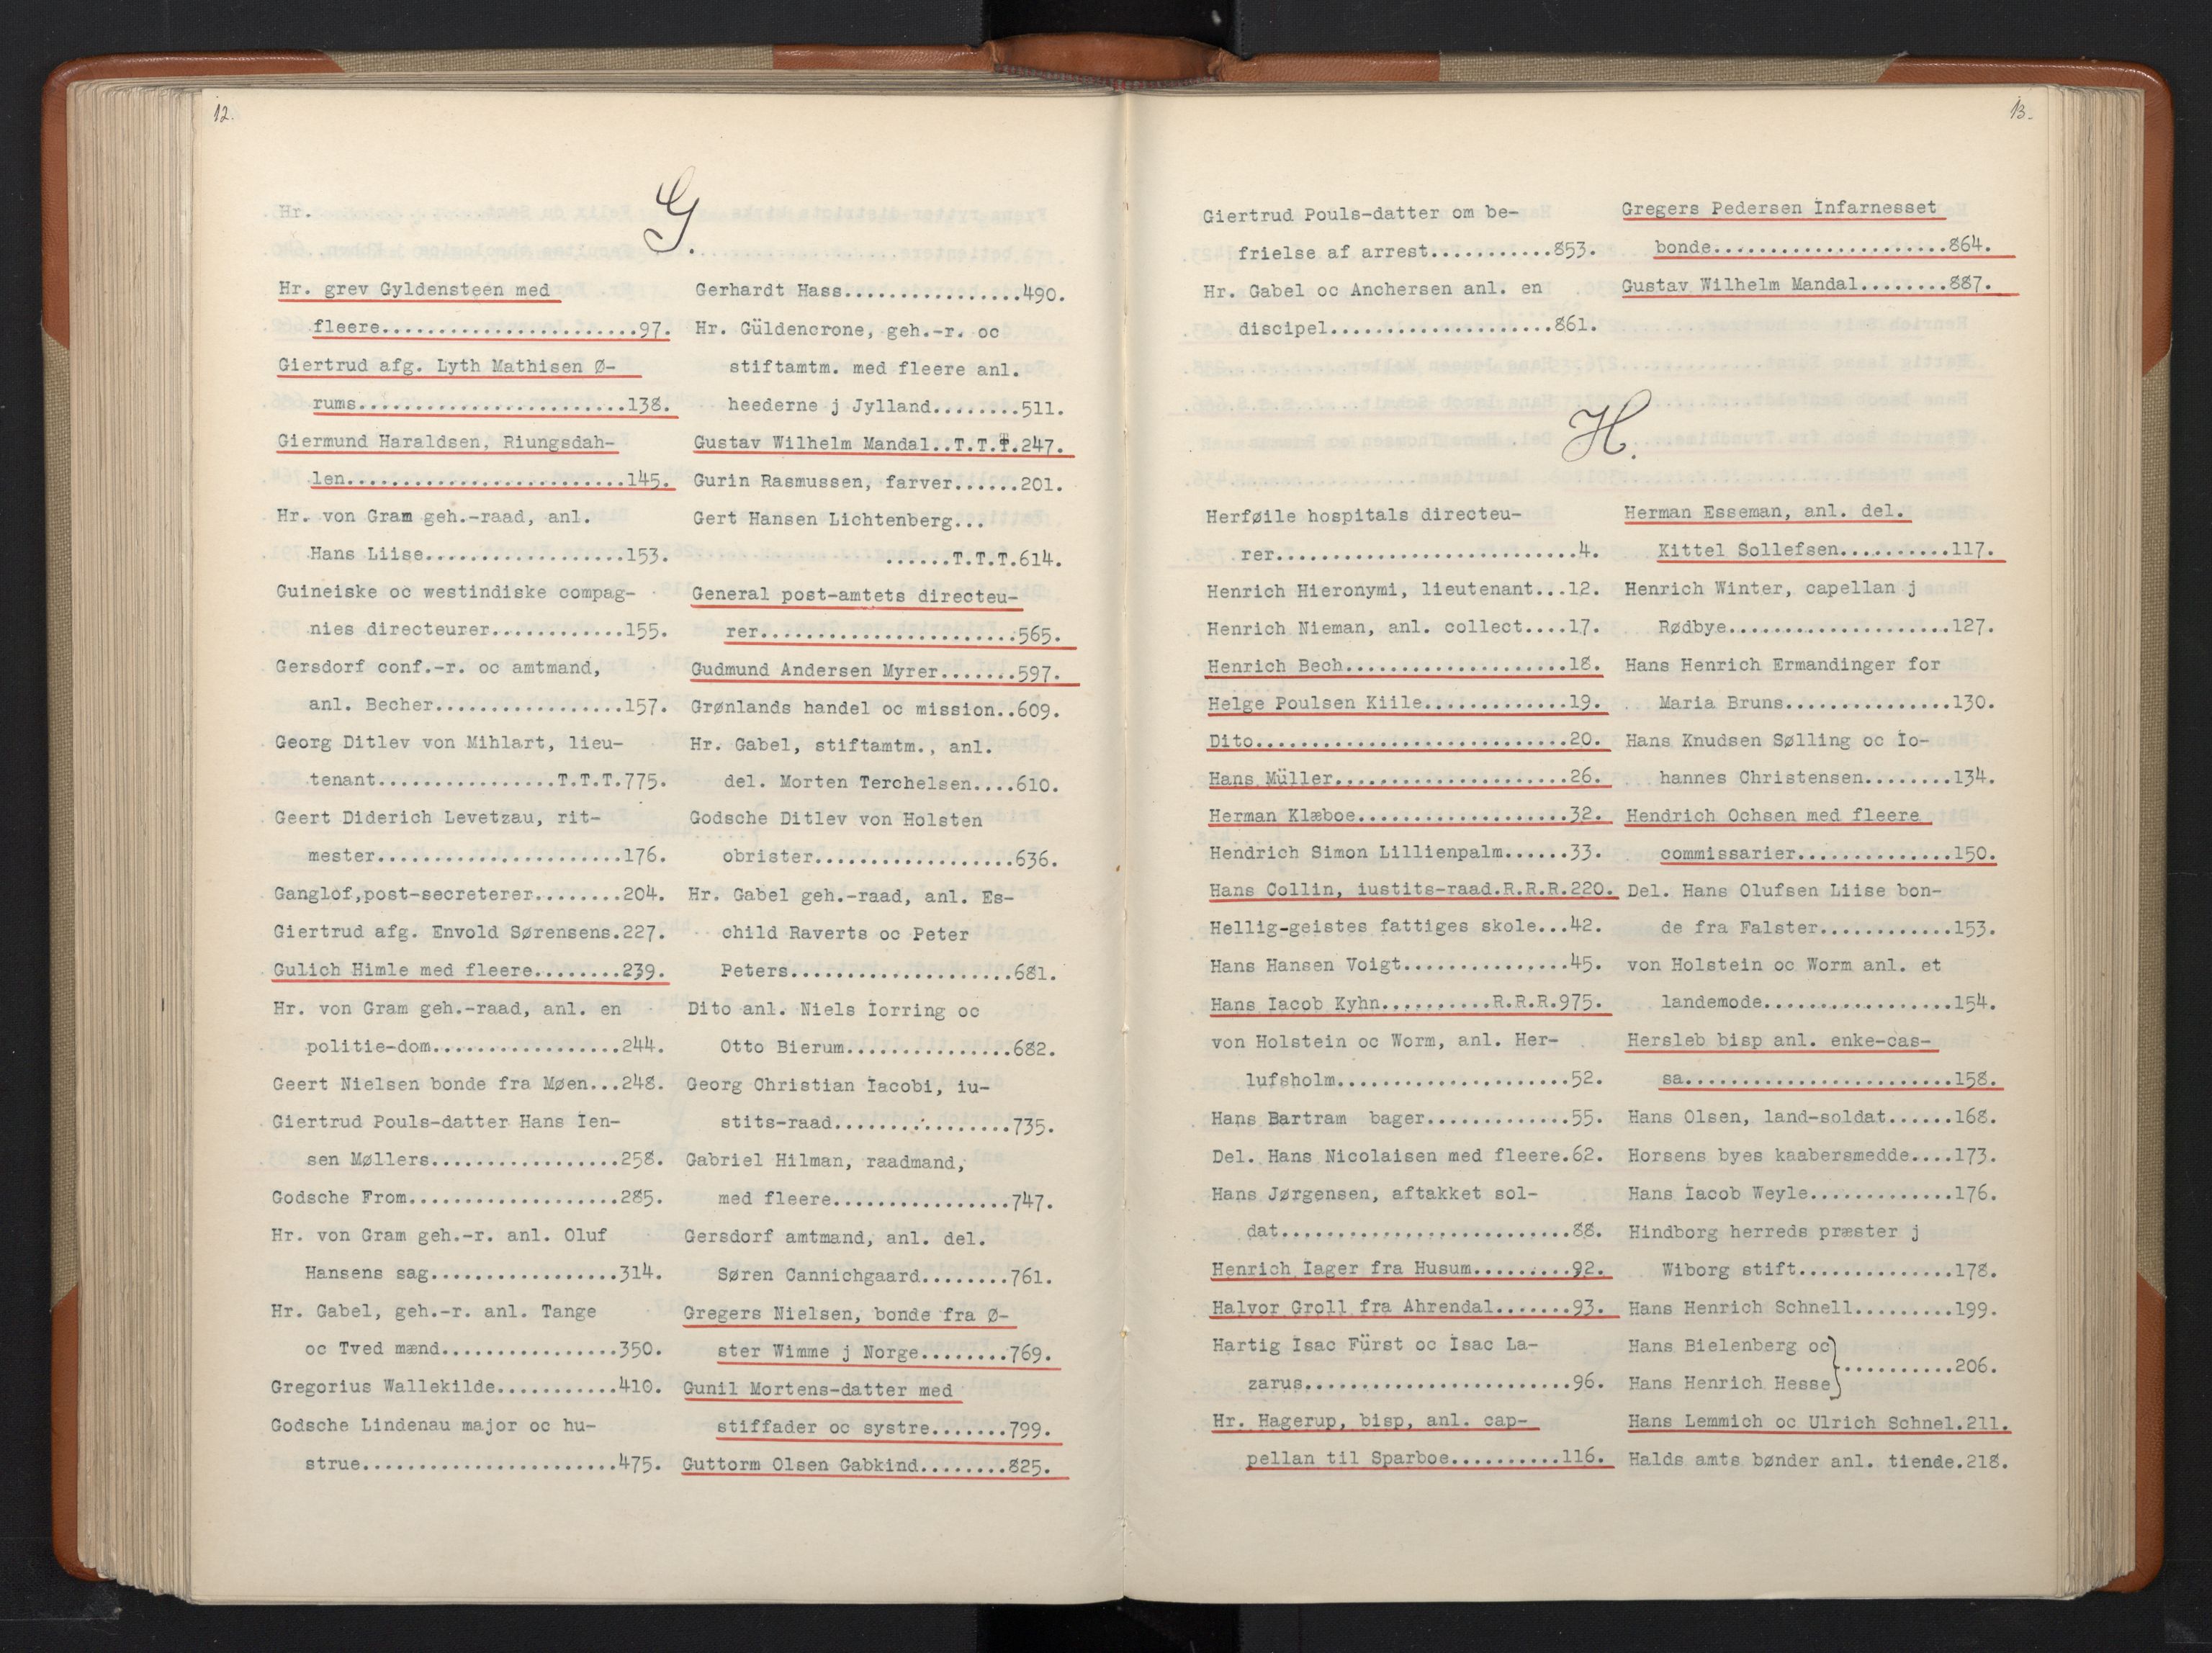 12.
G.
Hr.
Hr. grev Gyldensteen med
fleere.......................97.
Giertrud afg. Lyth Mathisen Ø-
rums........................138.
Giermund Haraldsen, Riungsdah-
len.........................145.
Hr. von Gram geh.-raad, anl.
Hans Liise..................153.
Guineiske oc westindiske compag-
nies directeurer............155.
Gersdorf conf.-r. oc amtmand,
anl. Becher.................157.
Georg Ditlev von Mihlart, lieu-
tenant................T.T.T.775.
Geert Diderich Levetzau, rit-
mester......................176.
Ganglof,post-secreterer........204.
Giertrud afg. Envold Sørensens.227.
Gulich Himle med fleere........239.
Hr. von Gram geh.-raad, anl. en
politie-dom.................244.
Geert Nielsen bonde fra Møen...248.
Giertrud Pouls-datter Hans Ien-
sen Møllers.................258.
Godsche From...................285.
Hr. von Gram geh.-r. anl. Oluf
Hansens sag.................314.
Hr. Gabel, geh.-r. anl. Tange
oc Tved mænd................350.
Gregorius Wallekilde...........410.
Godsche Lindenau major oc hu-
strue.......................475.
Gerhardt Hass................490.
Hr. Güldencrone, geh.-r. oc
stiftamtm. med fleere anl.
heederne j Jylland........511.
Gustav Wilhelm Mandal..T.T.T.247.
Gurin Rasmussen, farver......201.
Gert Hansen Lichtenberg...
......T.T.T.614.
General post-amtets directeu-
rer.......................565.
Gudmund Andersen Myrer.......597.
Grønlands handel oc mission..609.
Hr. Gabel, stiftamtm., anl.
del. Morten Terchelsen....610.
Godsche Ditlev von Holsten
obrister..................636.
Hr. Gabel geh.-raad, anl. Es-
child Raverts oc Peter
Peters....................681.
Dito anl. Niels Iorring oc
Otto Bierum...............682.
Georg Christian Iacobi, iu-
stits-raad................735.
Gabriel Hilman, raadmand,
med fleere................747.
Gersdorf amtmand, anl. del.
Søren Cannichgaard........761.
Gregers Nielsen, bonde fra Ø-
ster Wimme j Norge........769.
Gunil Mortens-datter med
stiffader oc systre.......799.
Guttorm Olsen Gabkind........825.
13.
Giertrud Pouls-datter om be-
frielse af arrest...........853.
Hr. Gabel oc Anchersen anl. en
discipel....................861.
Gregers Pedersen Infarnesset
bonde.....................864.
Gustav Wilhelm Mandal........887.
H.
Herføile hospitals directeu-
rer...........................4.
Henrich Hieronymi, lieutenant...12.
Henrich Nieman, anl. collect....17.
Henrich Bech....................18.
Helge Poulsen Kiile.............19.
Dito............................20.
Hans Müller.....................26.
Herman Klæboe...................32.
Hendrich Simon Lillienpalm......33.
Hans Collin, iustits-raad.R.R.R.220.
Hellig-geistes fattiges skole...42.
Hans Hansen Voigt...............45.
Hans Iacob Kyhn..........R.R.R.975.
von Holstein oc Worm, anl. Her-
lufsholm.....................52.
Hans Bartram bager.............55.
Del. Hans Nicolaisen med fleere.62.
Hans Jørgensen, aftakket sol-
dat..........................88.
Henrich Iager fra Husum.........92.
Halvor Groll fra Ahrendal.......93.
Hartig Isac Fürst oc Isac La-
zarus........................96.
Hr. Hagerup, bisp, anl. cap-
pellan til Sparboe..........116.
Herman Esseman, anl. del.
Kittel Sollefsen..........117.
Henrich Winter, capellan j
Rødbye....................127.
Hans Henrich Ermandinger for
Maria Bruns...............130.
Hans Knudsen Sølling oc Io-
hannes Christensen........134.
Hendrich Ochsen med fleere
commissarier..............150.
Del. Hans Olufsen Liise bon-
de fra Falster............153.
von Holstein oc Worm anl. et
landemode.................154.
Hersleb bisp anl. enke-cas-
sa........................158.
Hans Olsen, land-soldat......168.
Horsens byes kaabersmedde....173.
Hans Iacob Weyle.............176.
Hindborg herreds præster j
Wiborg stift..............178.
Hans Henrich Schnell.........199.
Hans Bielenberg oc
Hans Henrich Hesse}..........206.
Hans Lemmich oc Ulrich Schnel.211.
Halds amts bønder anl. tiende.218.